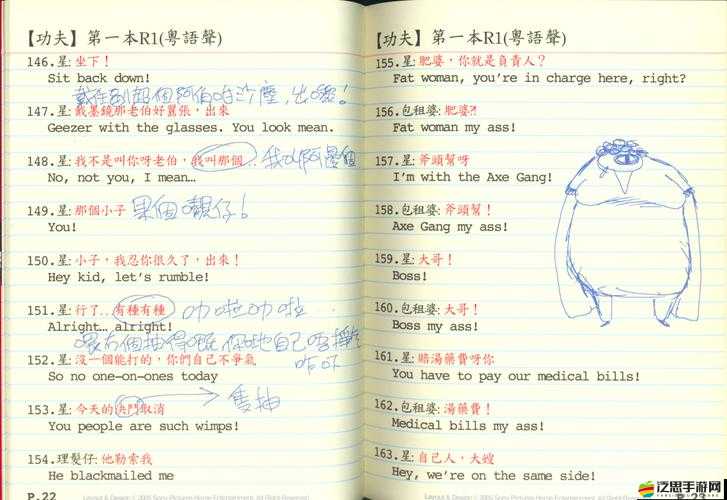 【功夫】第一本R1(粵語聲)
146.星:坐下!
Sit back down!
147.星:戴墨鏡那老伯好囂張,出來
Geezer with the glasses. You look mean.
148.星:我不是叫你呀老伯,我叫那個…
No, not you, I mean…
149.星:那個小子 果個靚仔!
You!
150.星:小子,我忍你很久了,出來!
Hey kid, let's rumble!
151.星:行了…有種有種
Alright… alright!
152.星:沒一個能打的,你們自己不爭氣
So no one-on-ones today
153.星:今天的決鬥取消 隻抽
You people are such wimps!
154.理髮仔:他勒索我
He blackmailed me
P.22
【功夫】第一本R1(粵語聲)
155.星:肥婆,你就是負責人?
Fat woman, you're in charge here, right?
156.包租婆:肥婆?!
Fat woman my ass!
157.星:斧頭幫呀
I'm with the Axe Gang!
158.包租婆:斧頭幫!
Axe Gang my ass!
159.星:大哥!
Boss!
160.包租婆:大哥!
Boss my ass!
161.星:賠湯藥費呀你
You have to pay our medical bills!
162.包租婆:湯藥費!
Medical bills my ass!
163.星:自己人,大嫂
Hey, we're on the same side!
P.23
泛思手游网